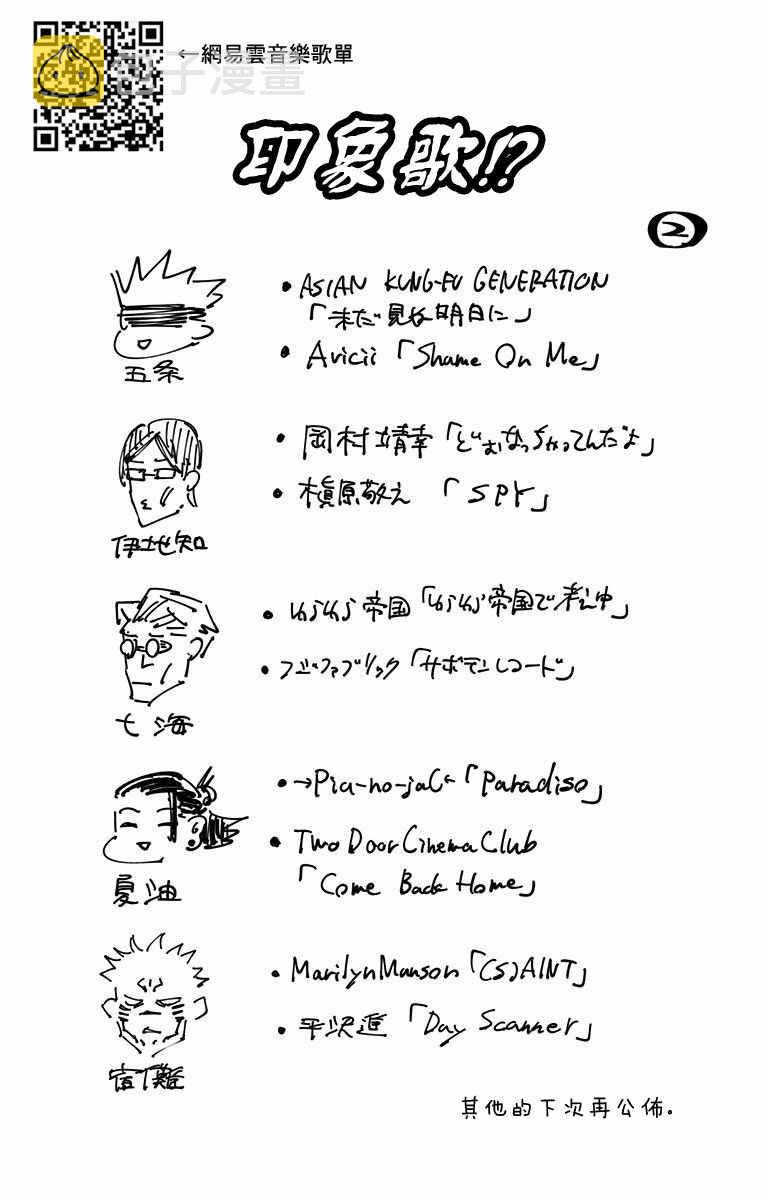 ←網易雲音樂歌單
包子漫畫
印象歌!?
2
五条
• ASIAN KUNG-FU GENERATION
「未だ見ぬ明日に」
• Avicii「Shame On Me」
伊地知
• 岡村靖幸「どぉなっちゃってんだよ」
• 槇原敬之 「SPY」
七海
• ゆらゆら帝国「ゆらゆら帝国で考え中」
• フジファブリック「サボテンレコード」
夏油
• →Pia-no-jaC←「Paradiso」
• Two Door Cinema Club
「Come Back Home」
宿儺
• Marilyn Manson「(s)AINT」
• 平沢進 「Day Scanner」
其他的下次再公佈.